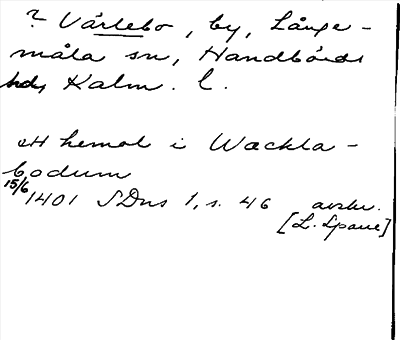 ? Värlebo, by, Långe-
måla sn, Handbörds
hd, Kalm. l.
ett hemal i Wackla-
bodum
15/6 1401 SDns 1, s. 46 avskr.
[L. Spane]